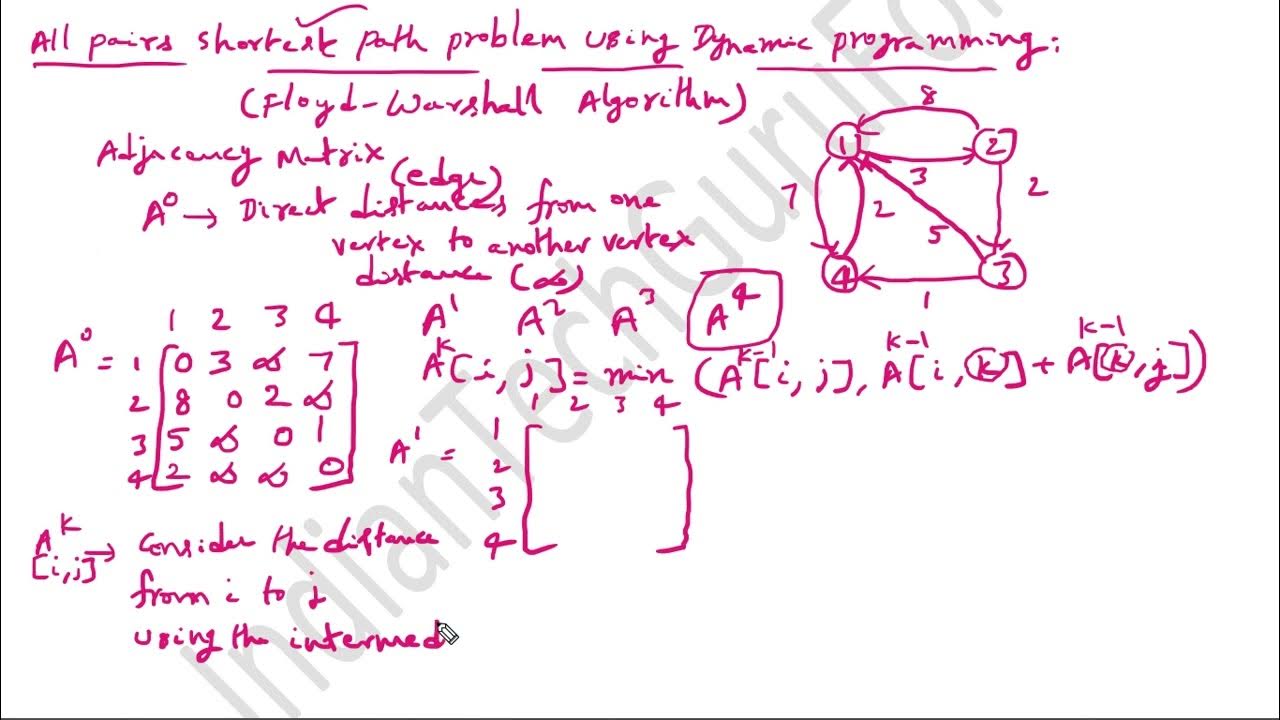 All pairs shortest path problem using Dynamic programming:
(Floyd-Warshall Algorithm)
Adjacency Matrix
(edge)
A⁰ → Direct distances from one
vertex to another vertex
distance (∞)
8
1 2
3
7 2 2
5
4 3
1
A¹ A² A³ A⁴
Aᵏ[i, j] = min (Aᵏ⁻¹[i, j], Aᵏ⁻¹[i, k] + Aᵏ⁻¹[k, j])
1 2 3 4
A⁰ = 1 [0 3 ∞ 7]
2 [8 0 2 ∞]
3 [5 ∞ 0 1]
4 [2 ∞ ∞ 0]
1 2 3 4
A¹ = 1
2
3
4
Aᵏ[i,j] → Consider the distance
from i to j
using the intermed
IndianTechGuruFo